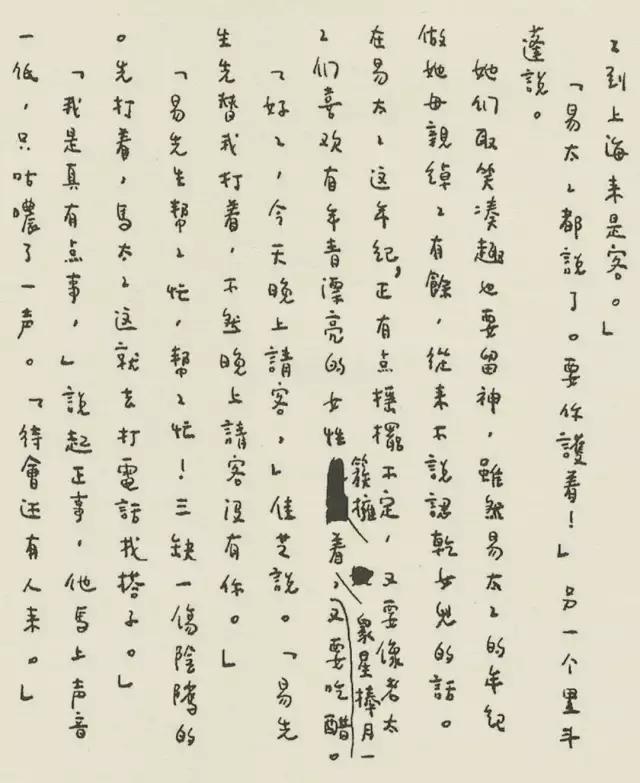 〻到上海来是客。」
「易太〻都說了。要你護着!」另一个黑斗
蓬說。
她们取笑凑趣也要留神,雖然易太〻的年紀
做她母親綽〻有餘,從来不說認乾女兒的話。
在易太〻這年紀,正有点摇擺不定,又要像老太
〻们喜欢有年青漂亮的女性
簇擁
着,
眾星捧月一
又要吃醋。
「好〻,今天晚上請客,」佳芝說。「易先
生先替我打着,不然晚上請客没有你。」
「易先生幫〻忙,幫〻忙!三缺一傷陰隲的
。先打着,馬太〻這就去打電話找搭子。」
「我是真有点事,」說起正事,他馬上声音
一低,只咕噥了一声。「待會还有人来。」